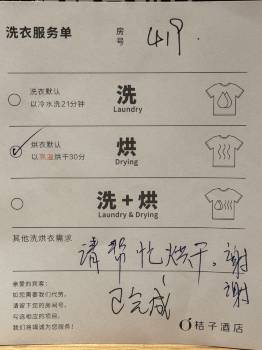 洗衣服务单
房号
419
洗衣默认
以冷水洗21分钟
洗
Laundry
烘衣默认
以高温烘干30分
烘
Drying
洗+烘
Laundry & Drying
其他洗烘衣需求
请帮忙烘干。谢谢
已完成
亲爱的宾客：
如您需要我们代劳，
请留下您的房间号，
勾选相应的项目，
我们将竭诚为您服务！
桔子酒店